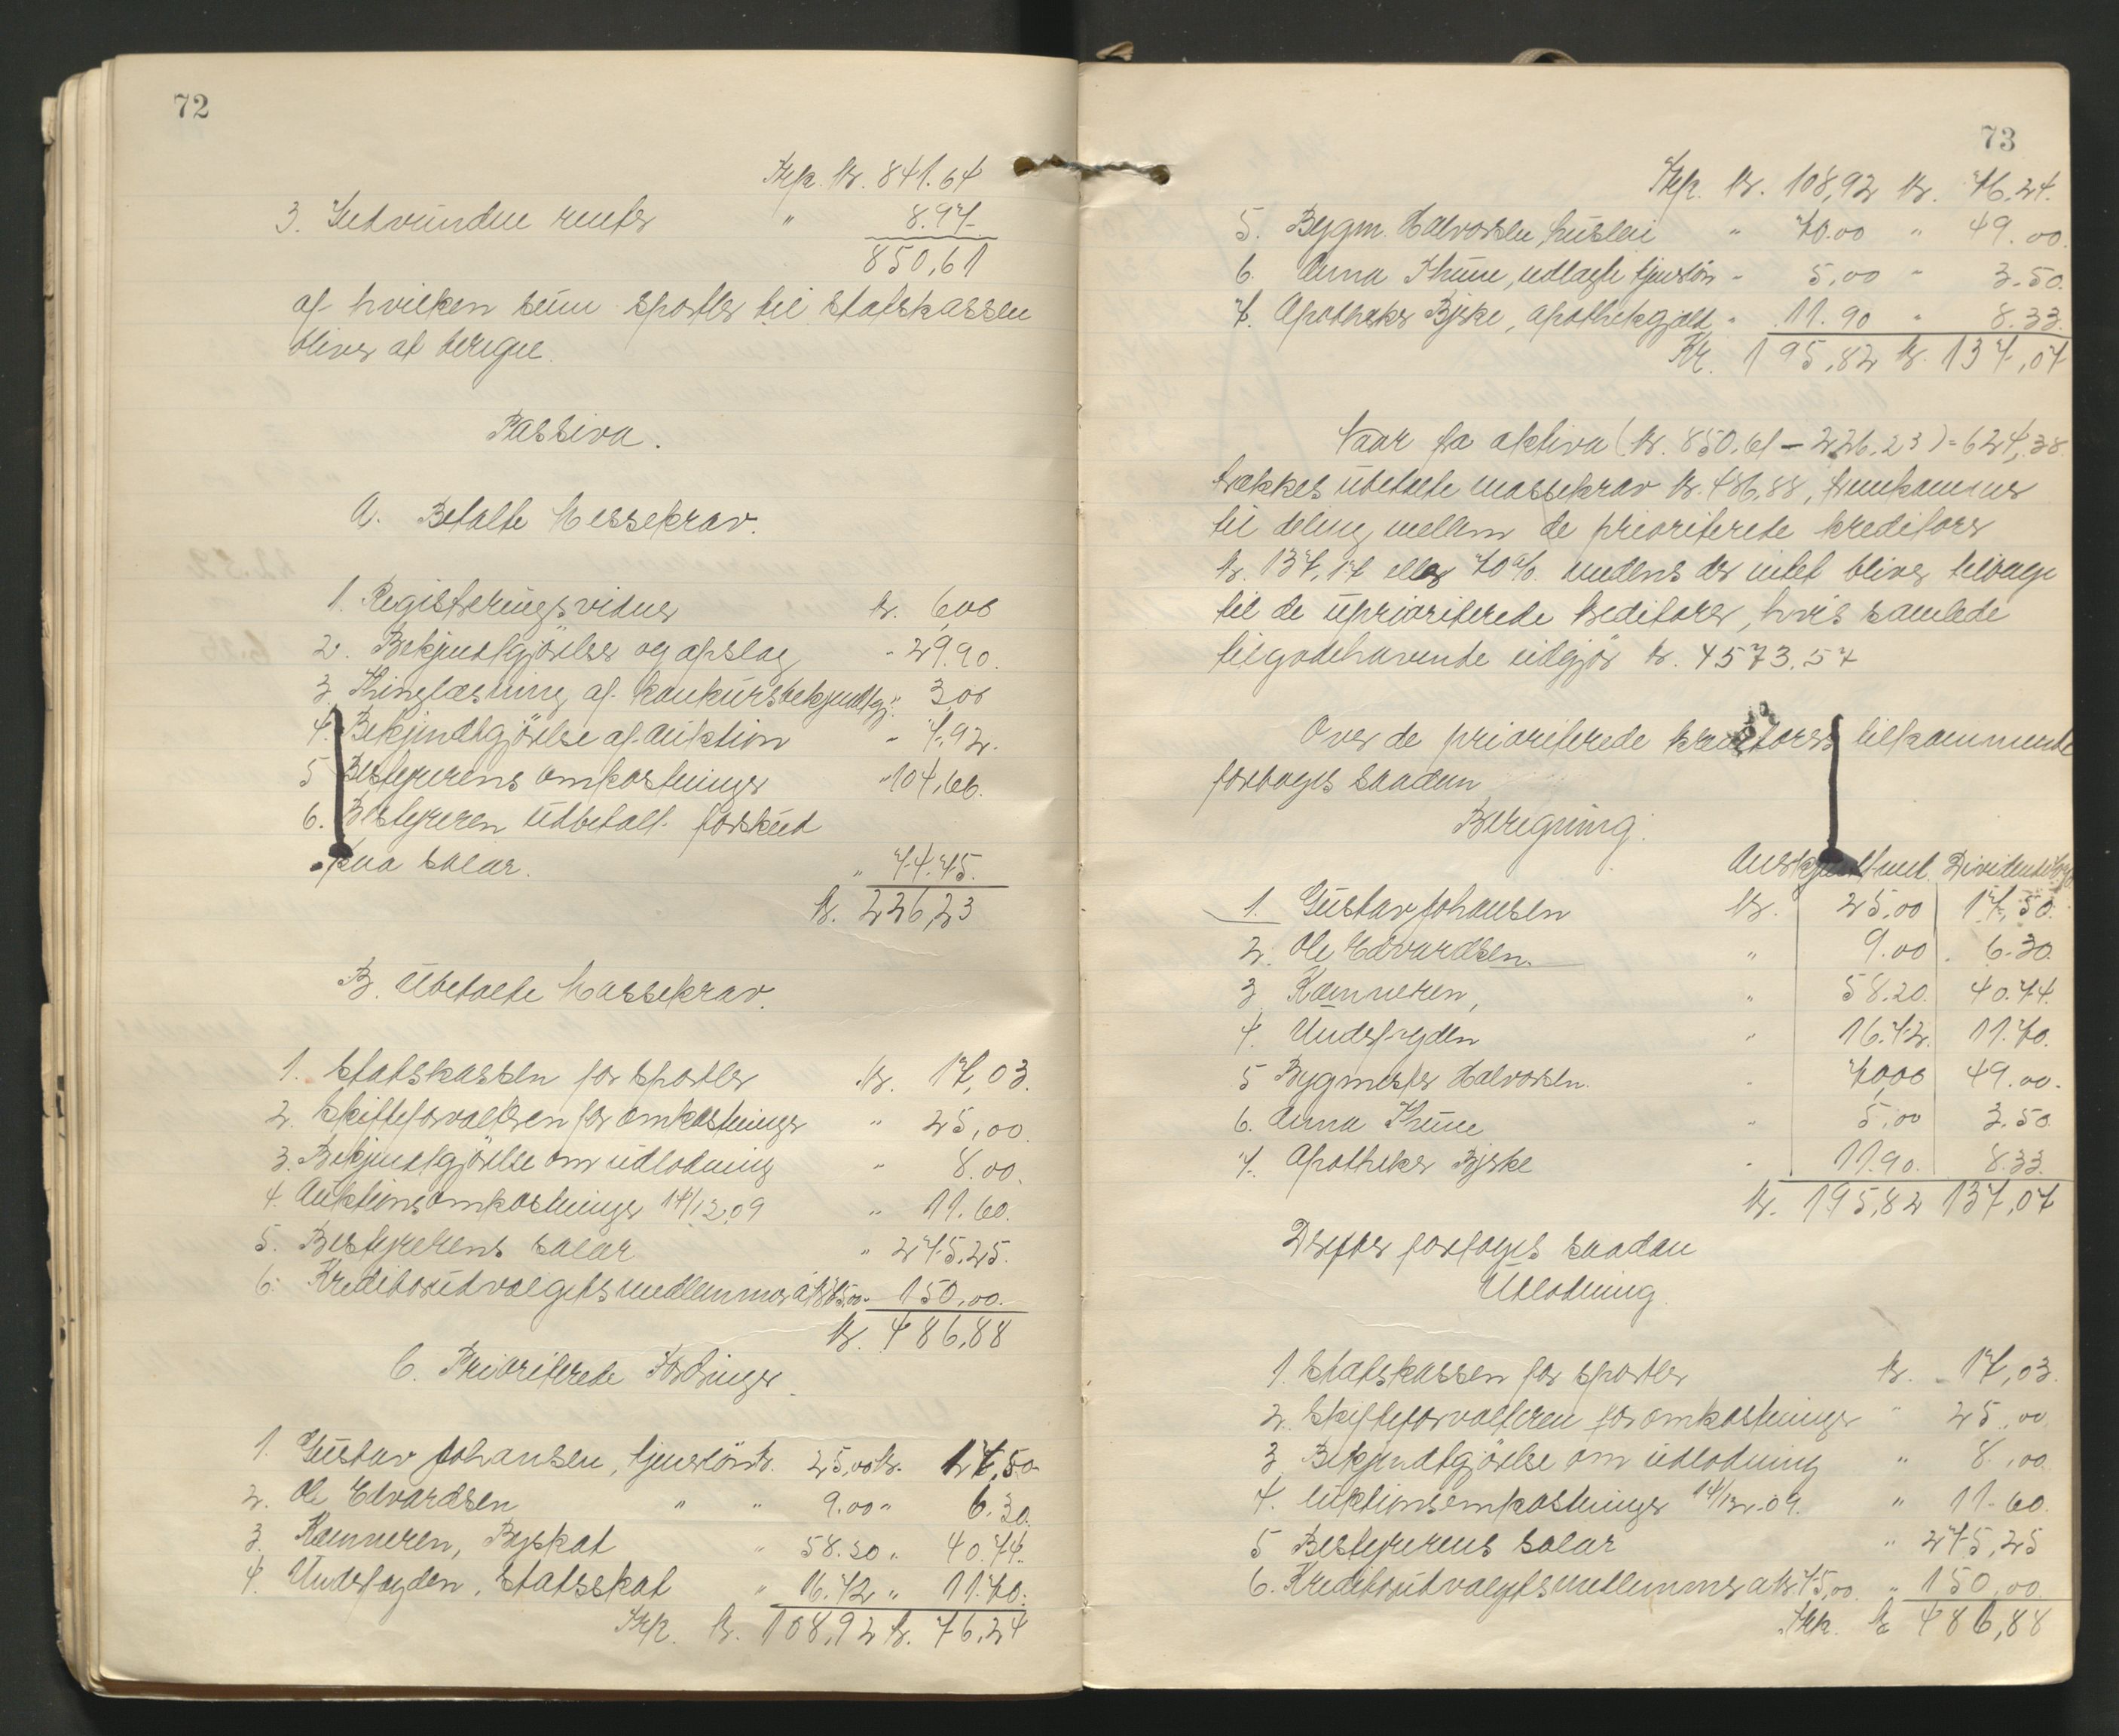 72
Trp. Kr. 841.64
3. Indvundne renter " 8.97
850,61
af hvilken sum sportler til statskassen
bliver at beregne.
Passiva.
A. Betalte Massekrav.
1. Registreringsvidner kr. 6,00
2. Bekjendtgjörelser og opslag " 29.90.
3. Thinglæsning af konkursbekjendtgj. " 3,00
4. Bekjendtgjörelse af auktion " 7.92.
5 Bestyrerens omkostninger " 104,66.
6. Bestyreren udbetalt forskud
paa salær. " 74.75.
kr. 226,23
B. Ubetalte Massekrav.
1. Statskassen for sportler kr. 17,03.
2. Skifteforvalteren for omkostninger " 25,00.
3. Bekjendtgjörelse om udlodning " 8.00.
4. Auktionsomkostninger 14/12 09 " 11.60.
5. Bestyrerens salær " 275,25.
6. Kreditorudvalgets medlemmer a kr 75,00. 150,00.
kr. 486,88
C. Prioriterede Fordringer.
1. Gustav Johansen, tjenerlön kr. 25,00 kr. 17,50
2. Ole Edvardsen " " 9.00 " 6.30.
3. Kæmneren, Byskat " 58.20 " 40.74.
4. Underfogden, Statsskat " 16.72 " 11.70.
Trp. kr. 108,92 kr. 76,24
73
Trp. kr. 108,92 kr. 76.24.
5. Bygm. Halvorsen, husleie " 70.00 " 49.00.
6. Anna Thune, udlagte tjenerlön " 5,00 " 3.50.
7. Apotheker Bjske, apothekgjæld " 11.90 " 8.33.
Kr. 195,82 kr. 137,07
Naar fra aktiva (kr. 850.61 – 226.23) = 624,38
trækkes ubetalte massekrav kr. 486,88, fremkommer
til deling mellem de prioriterede kreditorer
kr. 137,17 eller 70 % medens der intet bliver tilbage
til de uprioriterede kreditorer, hvis samlede
tilgodehavende udgjör kr. 4573.57
Over de prioriterede kreditorers tilkommende
foretages saadan
Beregning.
Anerkjendt med. Dividende
1. Gustav Johansen kr. 25,00 17,50.
2. Ole Edvardsen. " 9.00 6.30.
3 Kæmneren, " 58.20. 40.74.
4. Underfogden " 16.72. 11.70.
5 Bygmester Halvorsen. " 70,00 49.00.
6. Anna Thune " 5,00 3.50.
7. Apotheker Bjske " 11.90. 8.33.
kr. 195,82 137,07
Derefter foretages saadan
Udlodning.
1. Statskassen for sportler kr. 17,03.
2. Skifteforvalteren for omkostninger " 25,00.
3 Bekjendtgjörelse om udlodning " 8,00.
4. Auktionsomkostninger 14/12-09. " 11.60.
5 Bestyrerens salær " 275,25
6. Kreditorudvalgets medlemmer a kr 75,00. " 150,00.
Trp. kr 486,88